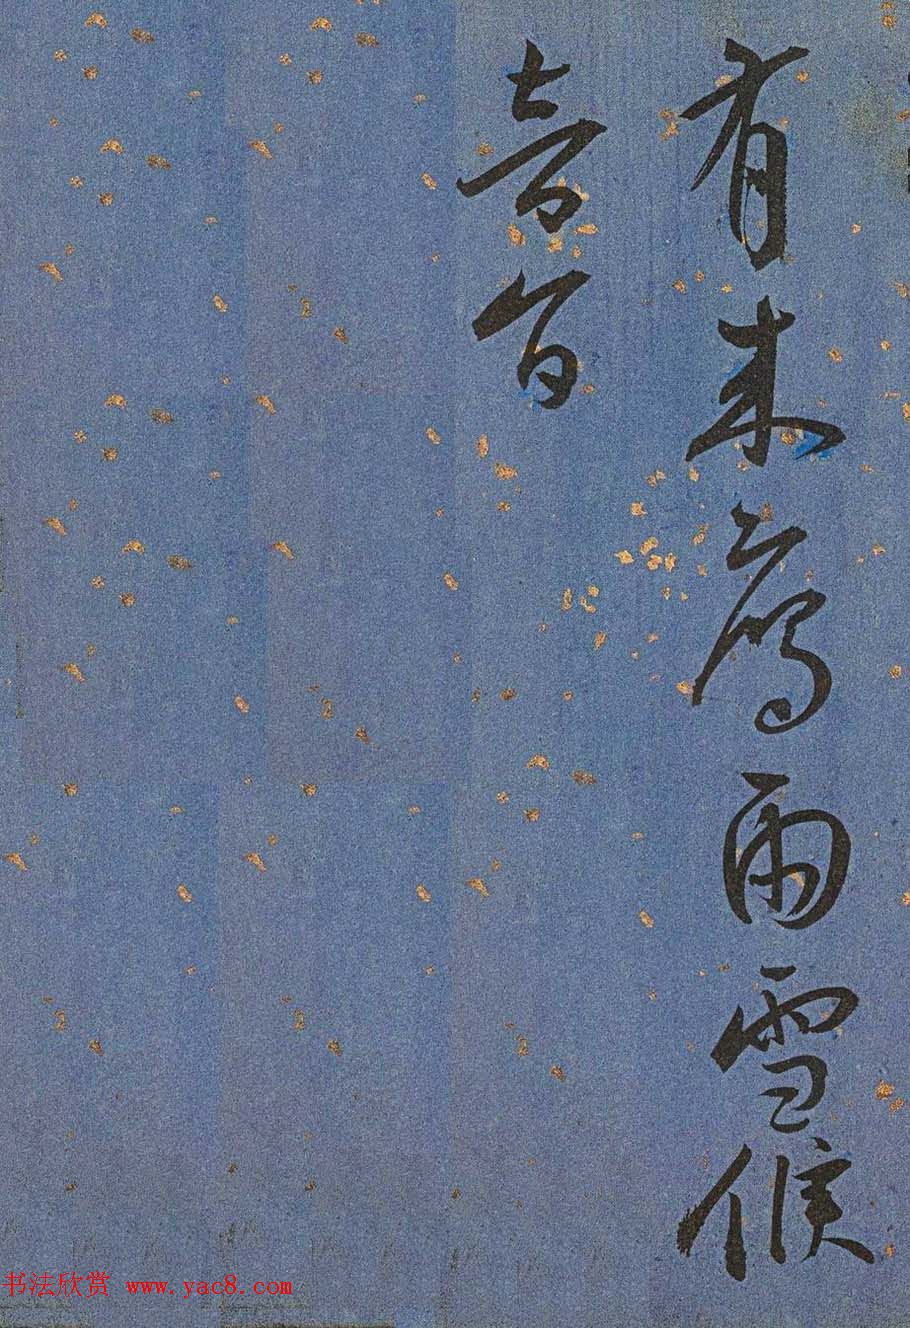 有来雨雪候
音
书法欣赏 www.yac8.com